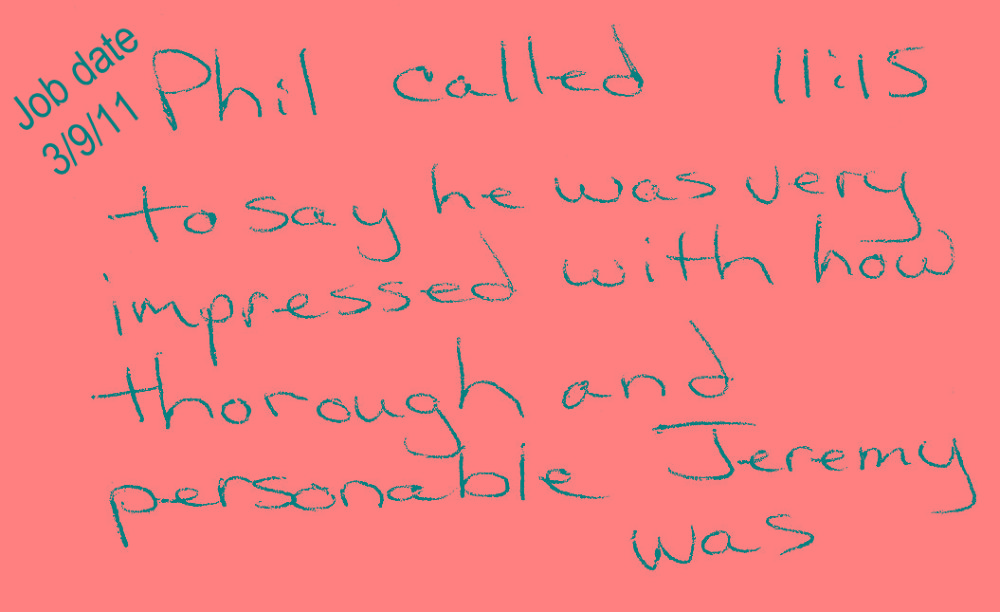 Job date
3/9/11
Phil called 11:15
to say he was very
impressed with how
thorough and
personable Jeremy
was